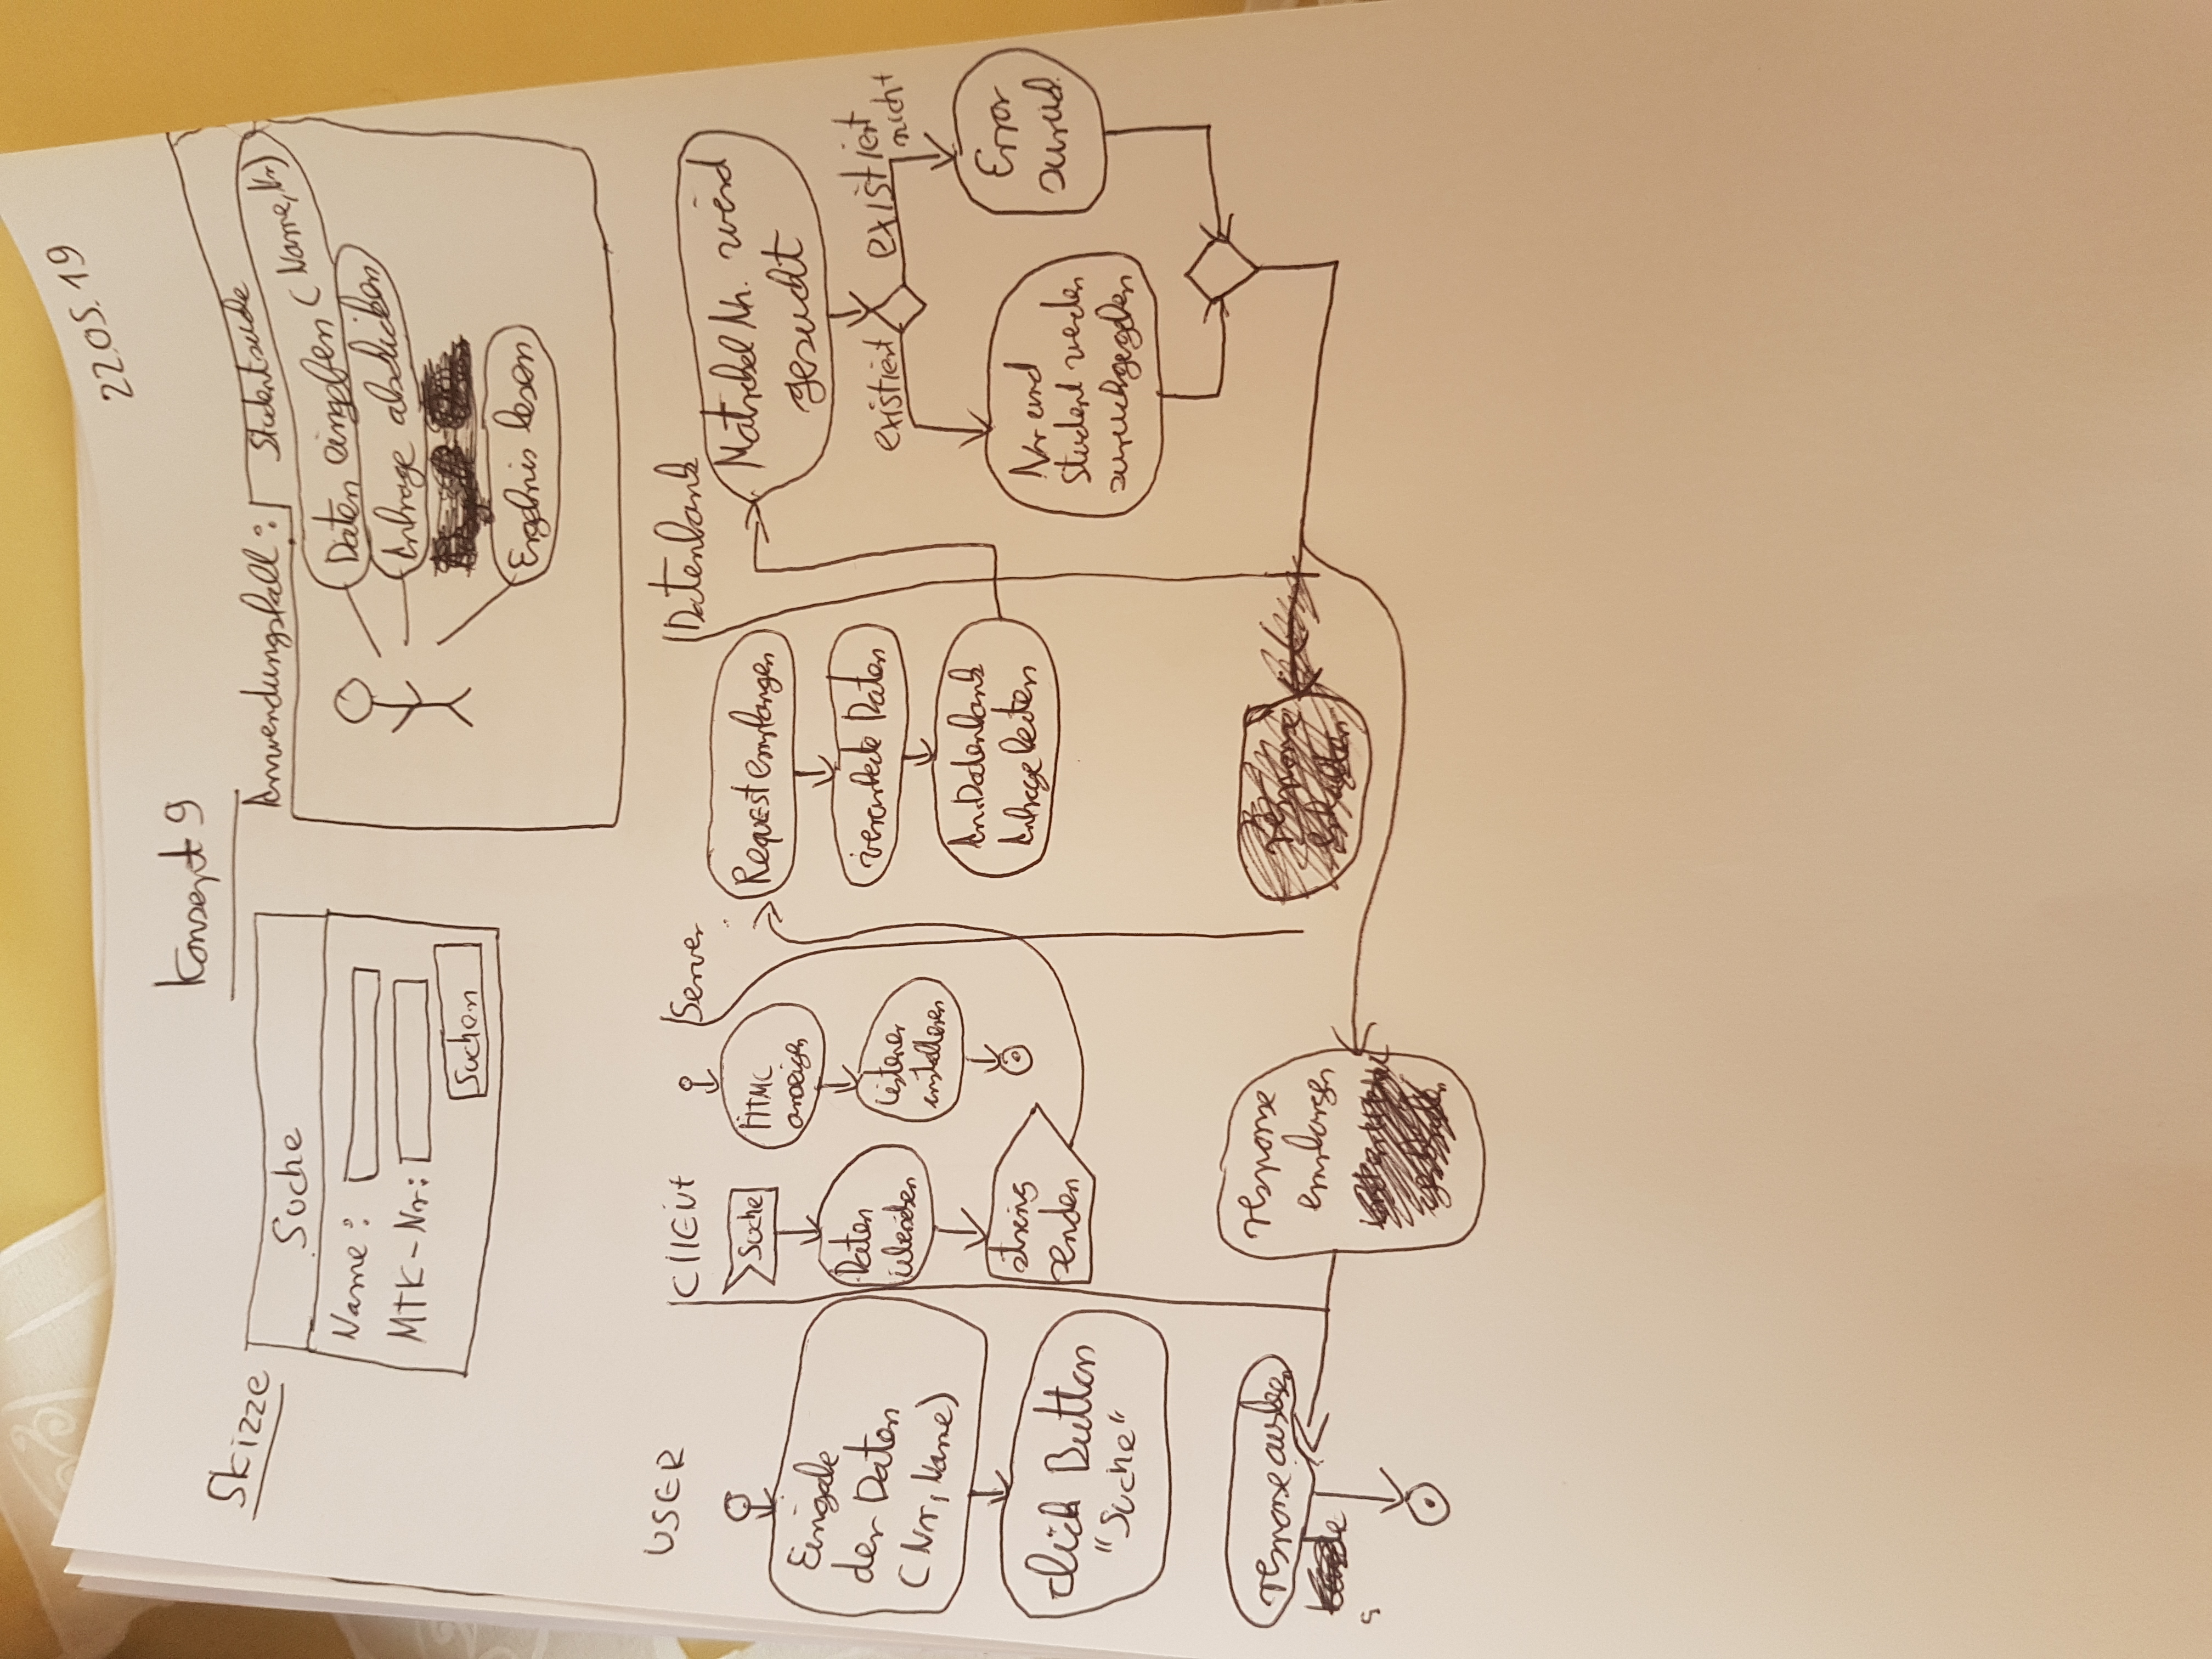 22.05.19
Konzept 9
Skizze
Suche
Name:
MTK-Nr:
Suchen
Anwendungsfall:
Studentsuche
Daten eingeben (Name, Nr)
Anfrage abschicken
Ergebnis lesen
USER
Eingabe
der Daten
(Nr, Name)
click Button
"Suche"
response auslesen
ClIENt
Suche
Daten
string
senden
HTML
anzeigen
Listener
installieren
response
empfangen
Server
Request empfangen
verarbeite Daten
An Datenbank
Anfrage leiten
Datenbank
Matrikel Nr. wird
gesucht
existiert
existiert
nicht
Nr und
Student werden
zurückgegeben
Error
zurück